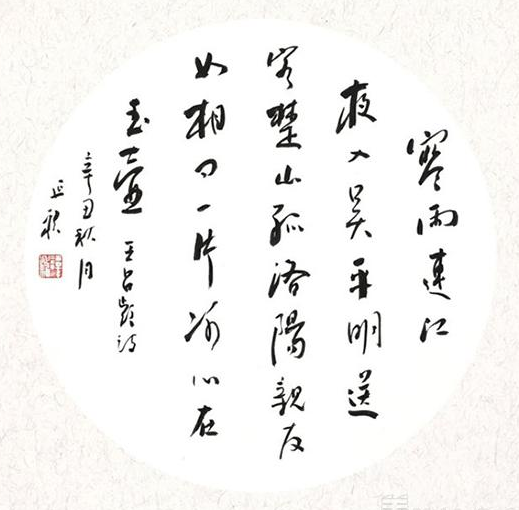 寒雨連江
夜入吳平明送
客楚山孤洛陽親友
如相問一片冰心在
玉壺 王昌齡詩
辛丑秋月